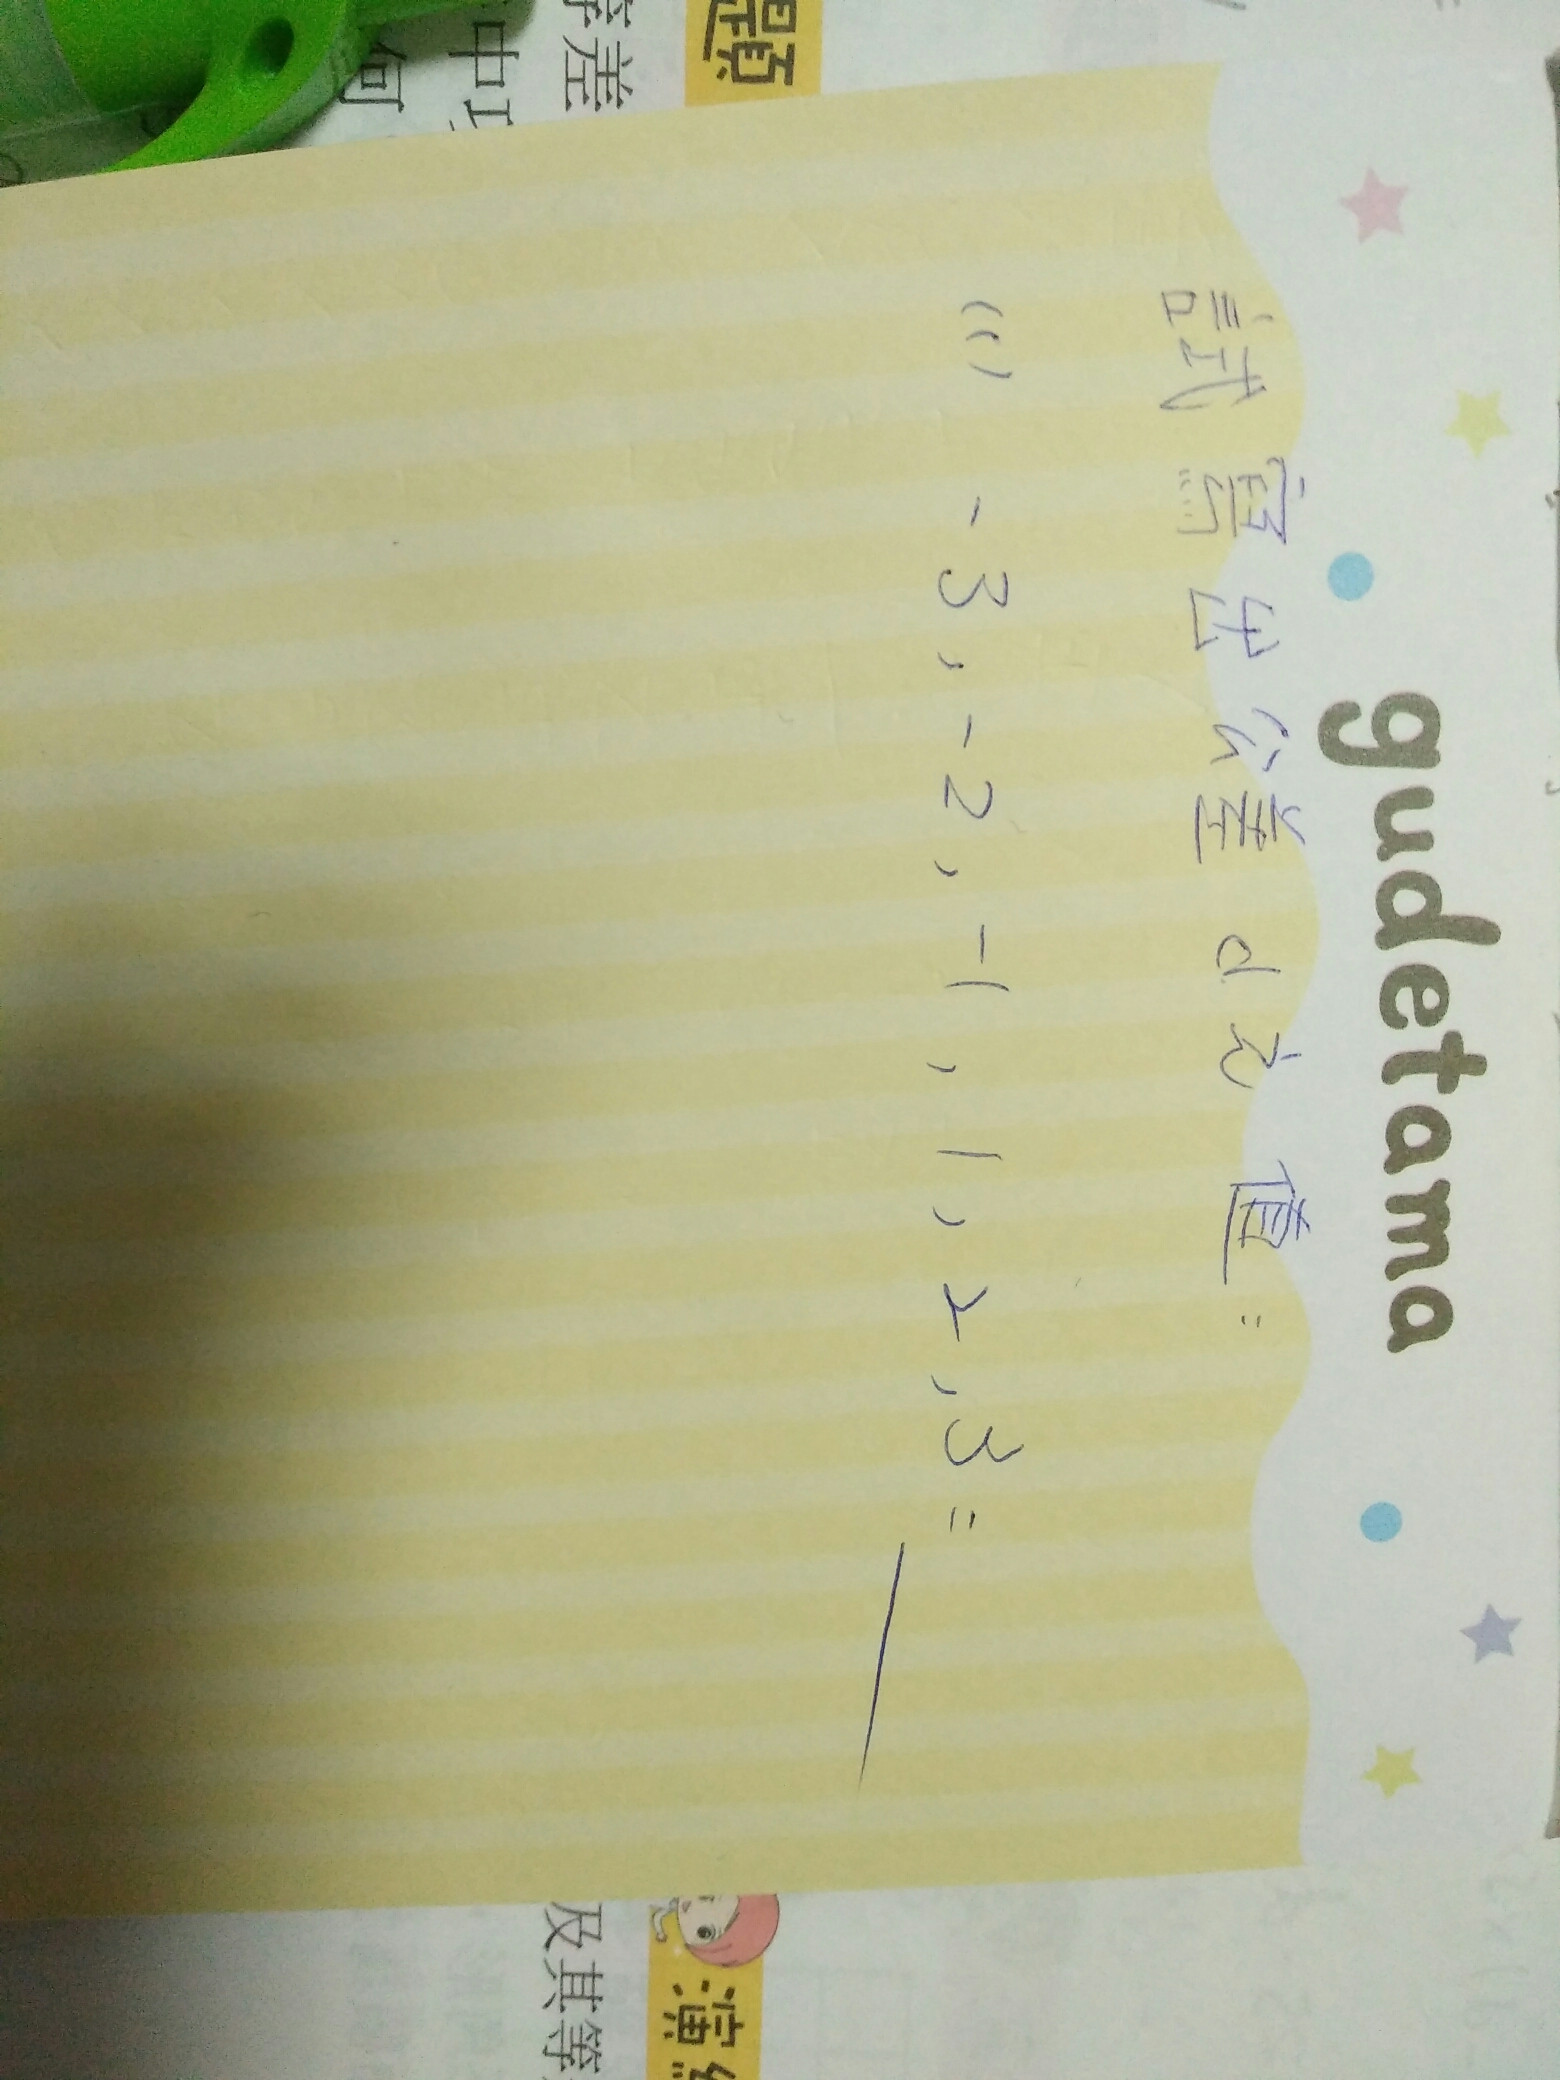 gudetama
試寫出公差d之值=
(1) -3, -2, -1, 1, 2, 3=
題
等差
中項
何
演
及其等